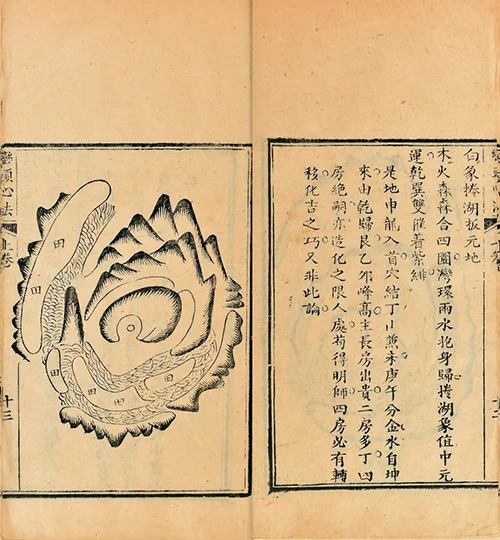 白象捲湖扳元地
木火森森合四圍灣環兩水抱身歸捲湖象值中元
運乾巽雙隆着紫緋
是地申龍入首穴結丁山兼未庚午分金水自坤
來由乾歸艮乙卯峰高主長房出貴二房多丁四
房絕嗣亦造化之限人處苟得明師四房必有轉
移化吉之巧又非此論
巒頭心法
上卷
十三
田
田
田
田
田
田